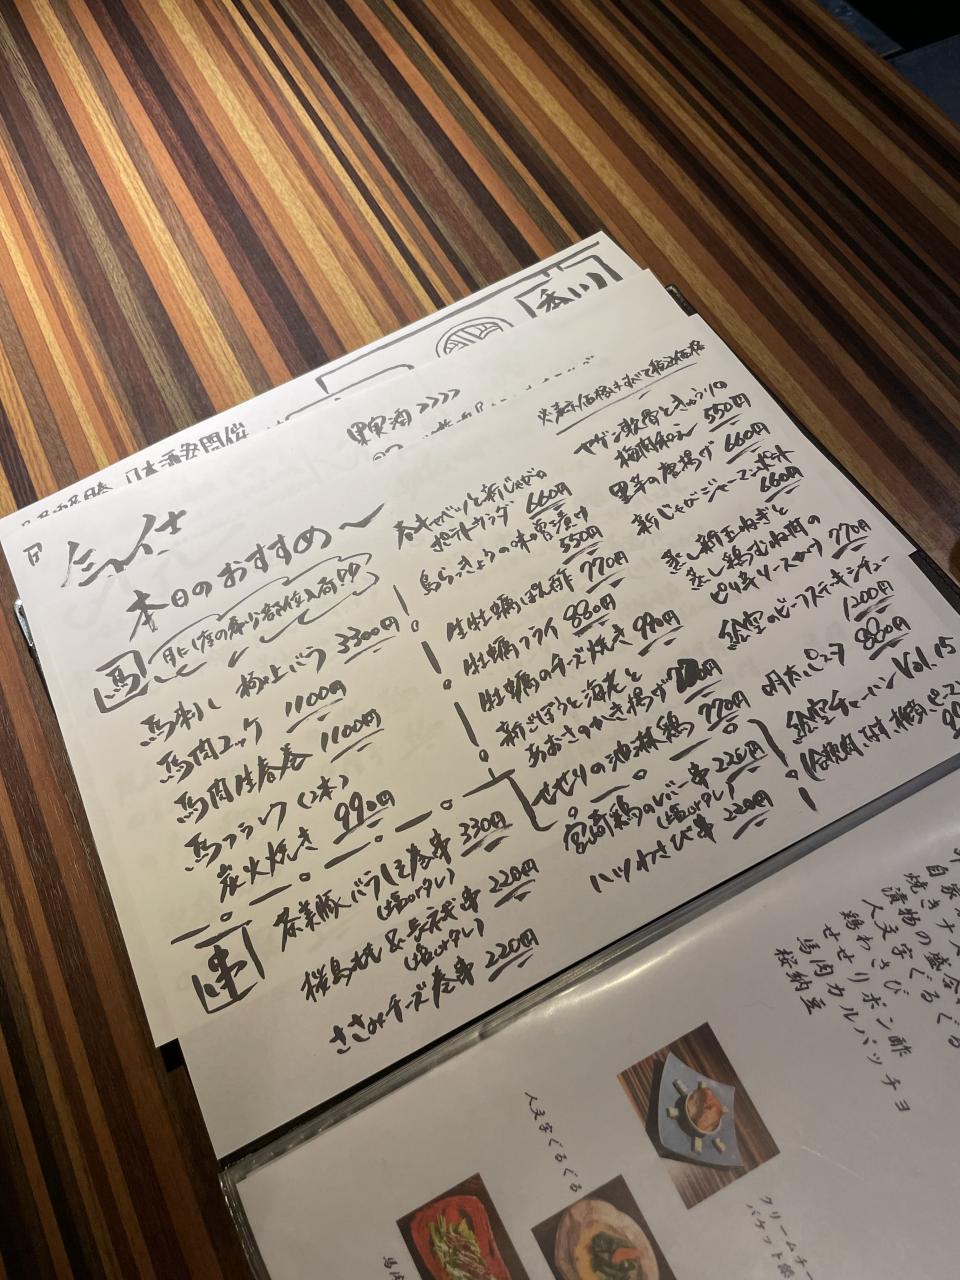 香川
※表示価格はすべて税込価格
本日のおすすめ〜
馬
馬刺し 極上バラ 3300円
馬肉ユッケ 1100円
馬肉生春巻 1100円
馬フランク(2本)
炭火焼き 990円
串
茶美豚バラしそ巻串 330円
(塩orタレ)
桜島もも&長ネギ串 220円
(塩orタレ)
ささみチーズ巻串 220円
春キャベツと新じゃがの
ポテトサラダ 660円
島らっきょうの味噌漬け
550円
生牡蠣ぽん酢 770円
牡蠣フライ 880円
牡蠣のチーズ焼き 990円
新ごぼうと海老と
あおさのかき揚げ
せせりの池林鶏 770円
宮崎鶏のレバー串 220円
(塩orタレ)
ハツわさび串 220円
ヤゲン軟骨ときゅうりの
梅肉和え 550円
里芋の唐揚げ 660円
新じゃがジャーマンポテト
660円
蒸し新玉ねぎと
蒸し鶏むね肉の
ピリ辛ソースがけ 770円
のビーフステキシチュー
1200円
明太パスタ 880円
チャーハン Vol.15
自家
焼きナス
漬物の盛合
人文字ぐるぐる
鶏わさび
せせりポン酢
馬肉カルパッチョ
桜納豆
人文字ぐるぐる
クリームチー
バケット
馬肉